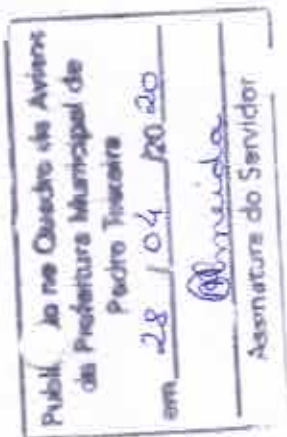 Publi do no Quadro de Avisos
da Prefeitura Municipal de
Pedro Teixeira
em 28 / 04 /20 20
Almeida
Assinatura do Servidor